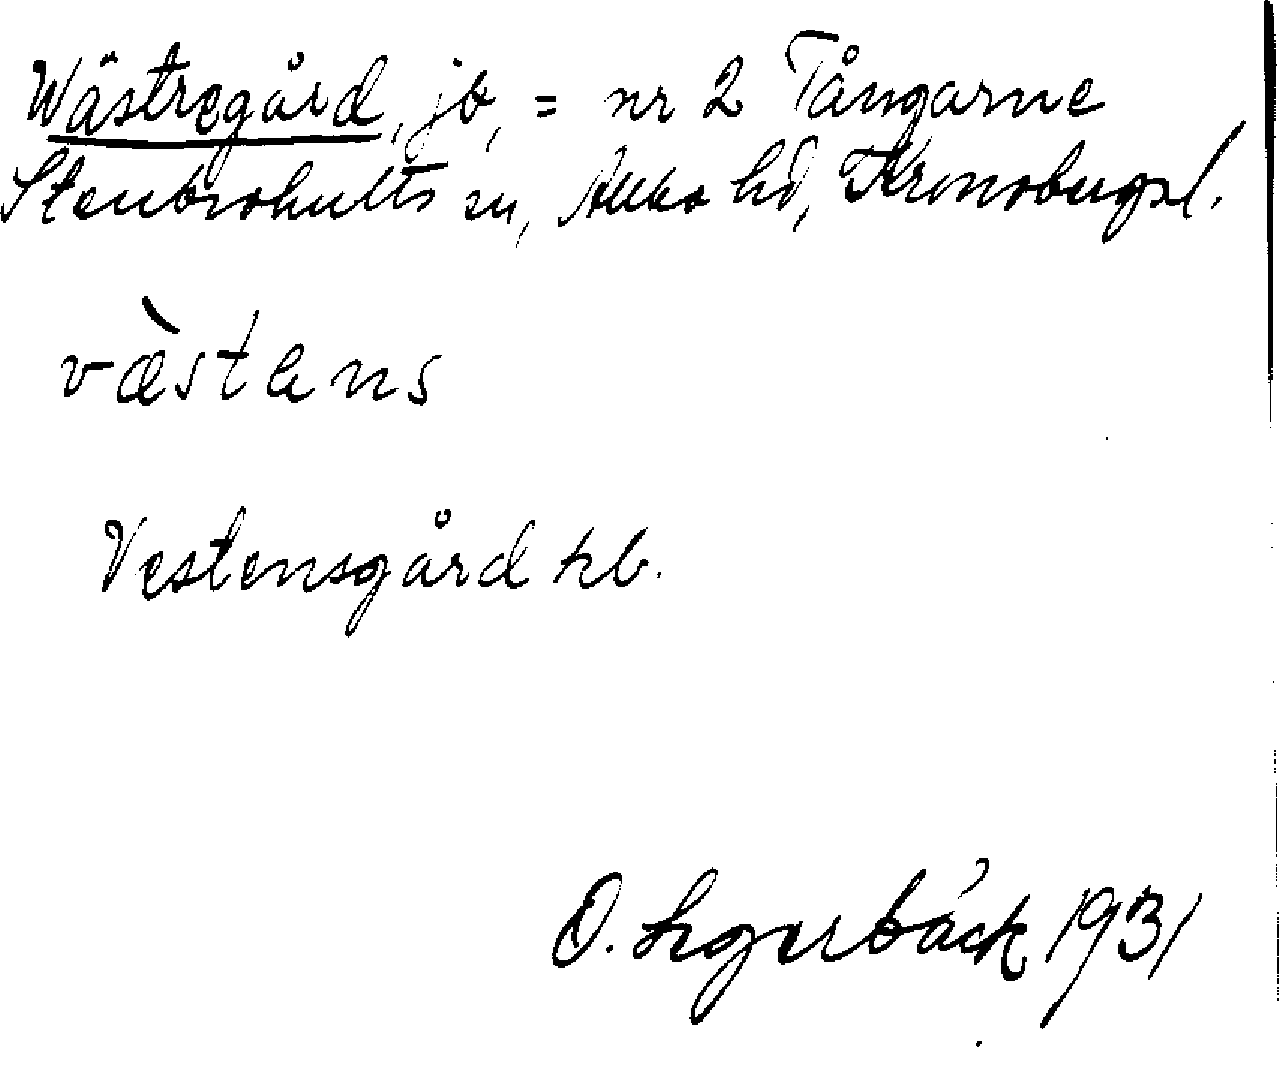 Wästregård, jb, = nr 2 Tångarne
Stenbrohults sn, Allbo hd, Kronobergs l.
væ̀stans
Vestensgård kb.
O. Lagerbäck 1931